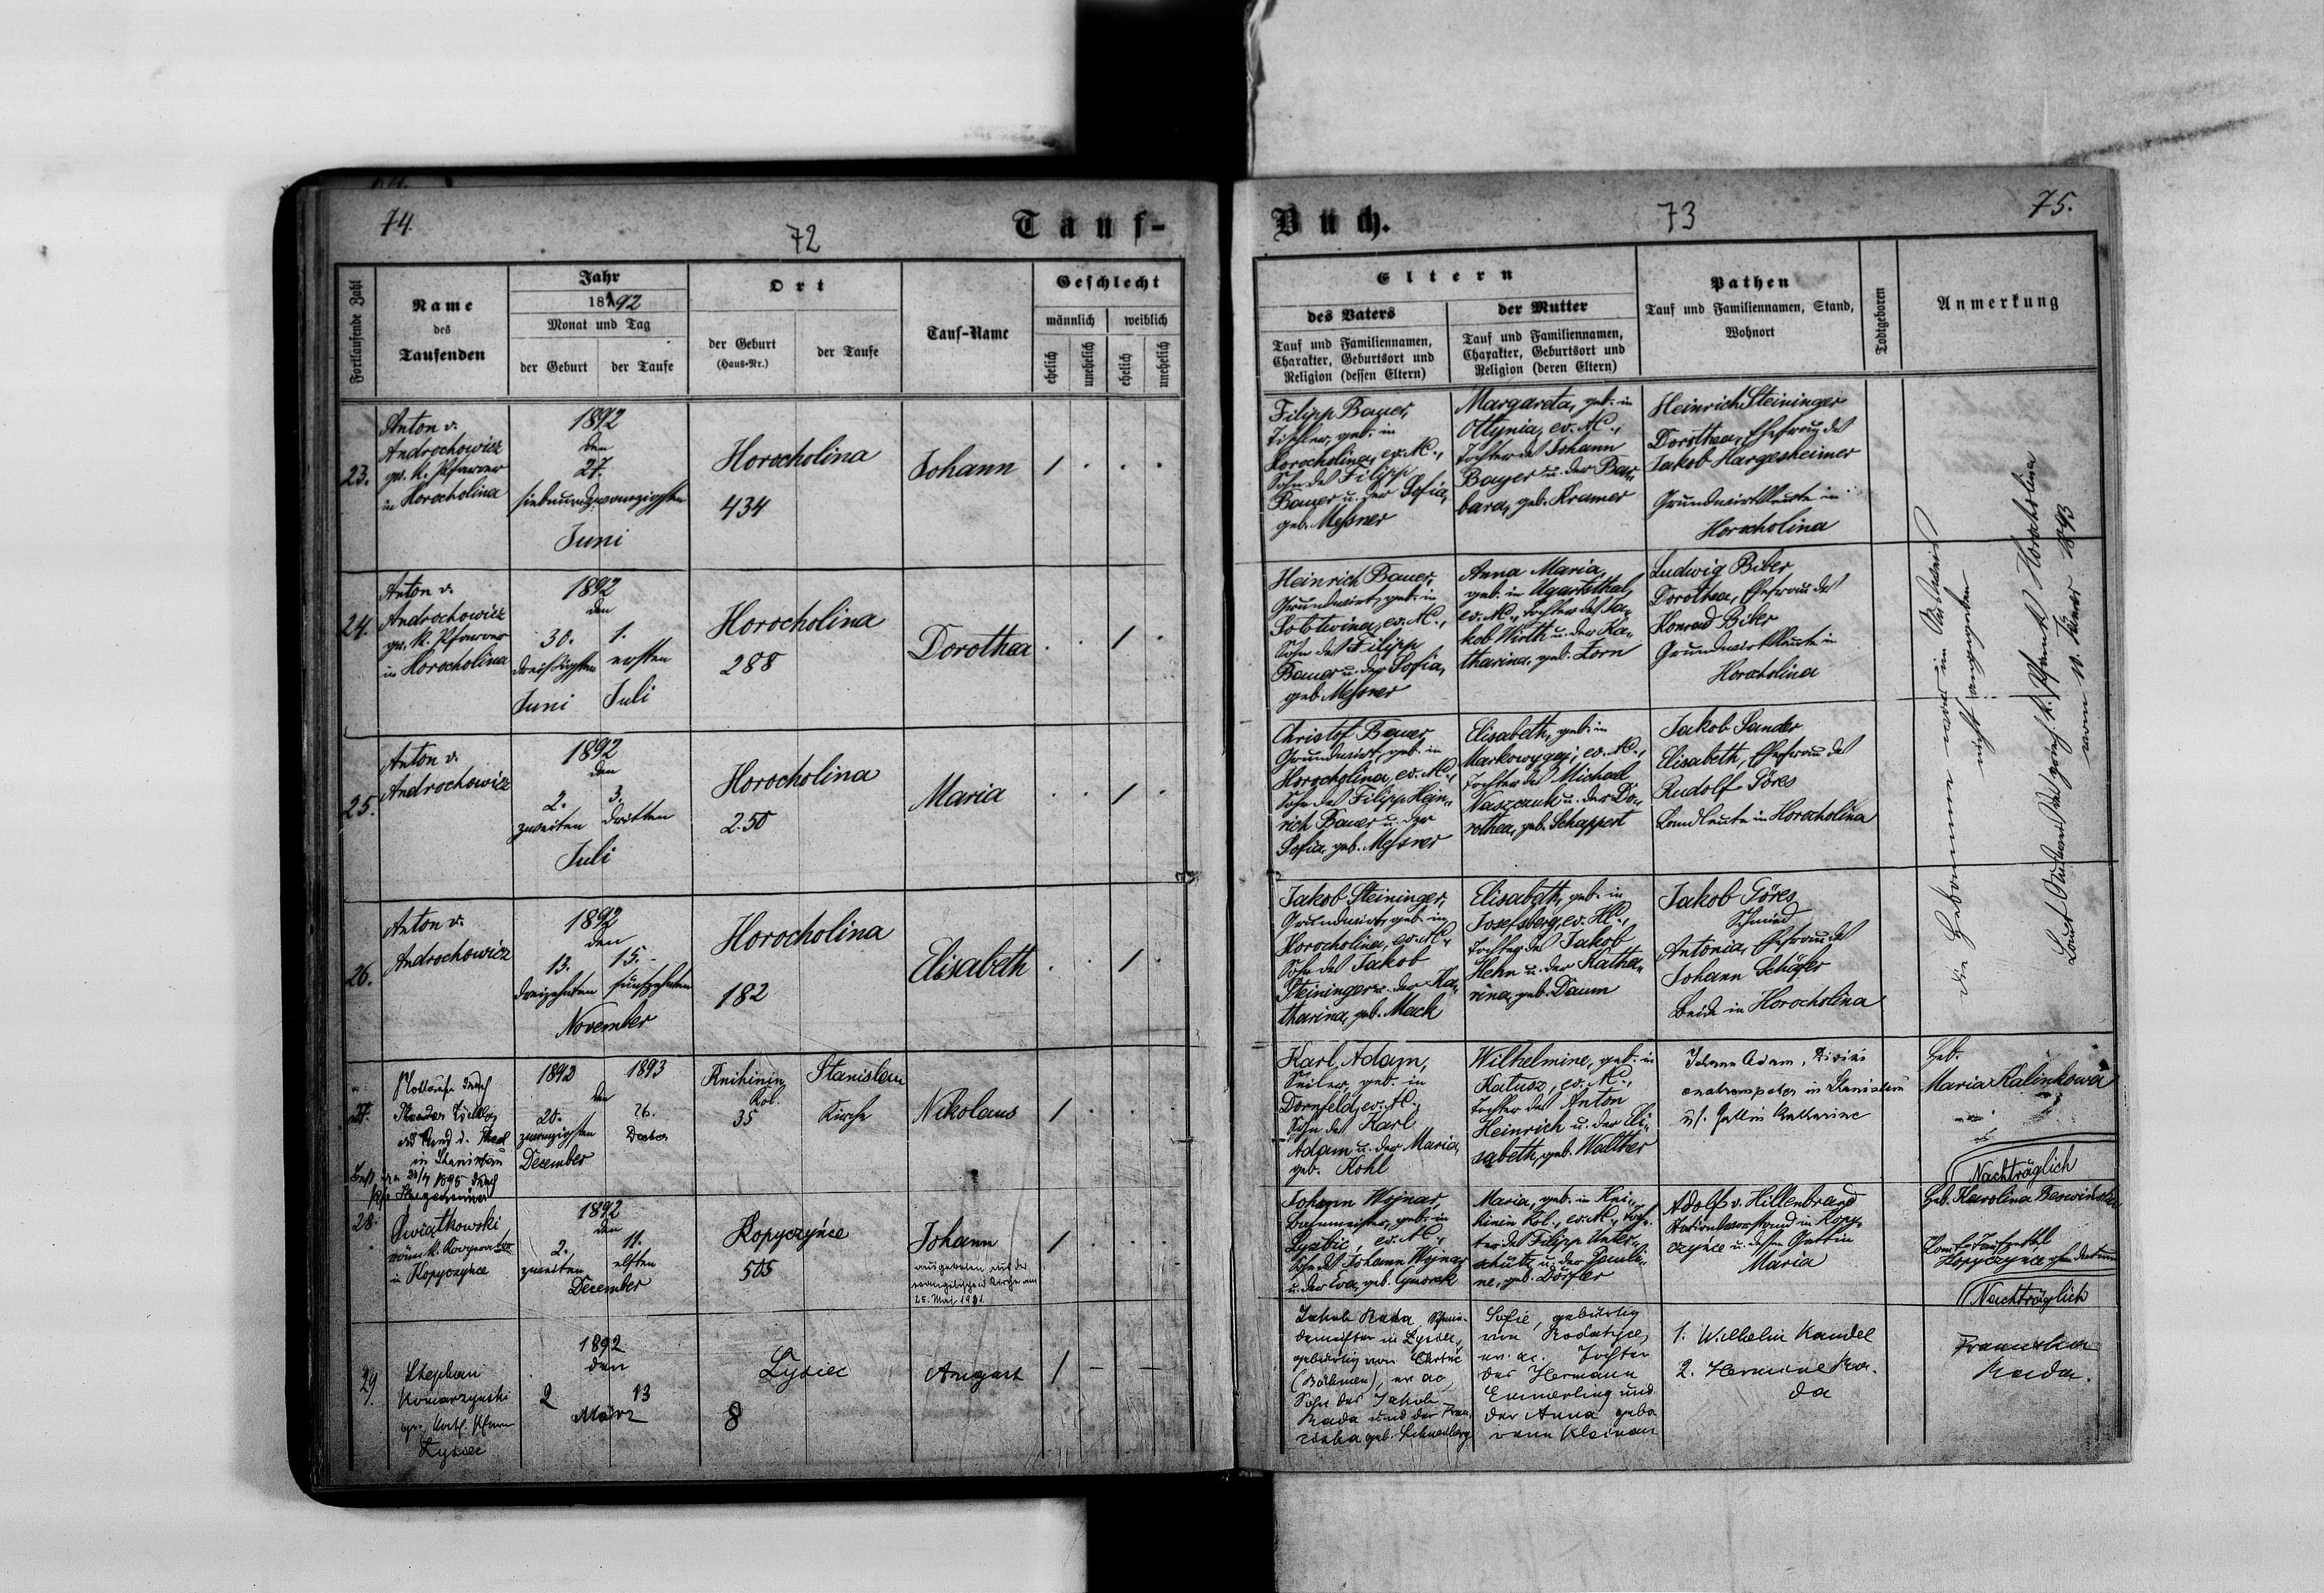 74.
72
Tauf-
Fortlaufende Zahl
Name
des
Taufenden
Jahr
1892
Monat und Tag
der Geburt
der Taufe
Ort
der Geburt
(Haus-Nr.)
der Taufe
Tauf-Name
Geschlecht
männlich
weiblich
ehelich
unehelich
ehelich
unehelich
23.
Anton v.
Androchowicz
gr. k. Pfarrer
in Horocholina
1892
den
27.
siebenundzwanzigsten
Juni
Horocholina
434
Johann
1
24.
Anton v.
Androchowicz
gr. k. Pfarrer
in Horocholina
1892
den
30. 1.
dreißigsten ersten
Juni Juli
Horocholina
288
Dorothea
1
25.
Anton v.
Androchowicz
1892
den
2. 3.
zweiten dritten
Juli
Horocholina
250
Maria
1
26.
Anton v.
Androchowicz
1892
den
13. 15.
dreizehnten fünfzehnten
November
Horocholina
182
Elisabeth
1
27.
Nottaufe durch
in Stanislau
1892 1893
den
20. 26.
zwanzigsten
December
Knihinin
Kol.
35
Stanislau
Kirche
Nikolaus
1
28.
Kwiatkowski
röm. k. Kooperator
in Kopyczyńce
1892
den
2. 11.
zweiten elften
December
Kopyczyńce
505
Johann
ausgetreten aus der
evangelischen Kirche am
25. Mai 1931.
1
29.
Stephan
Komarzynski
gr. kath. Pfarrer
Lysiec
1892
den
2 13
März
Lysiec
8
August
1
Buch.
73
75.
Eltern
des Vaters
Tauf und Familiennamen,
Charakter, Geburtsort und
Religion (dessen Eltern)
der Mutter
Tauf und Familiennamen,
Charakter, Geburtsort und
Religion (deren Eltern)
Pathen
Tauf und Familiennamen, Stand,
Wohnort
Todtgeboren
Anmerkung
Filipp Bauer,
Tischler, geb. in
Horocholina, ev. A. C.,
Sohn des Filipp
Bauer u. der Sofia,
geb. Meßner
Margareta, geb. in
Ottynia, ev. A. C.,
Tochter des Johann
Bayer u. der Bar-
bara, geb. Kramer
Heinrich Steininger
Dorothea, Ehefrau des
Jakob Hargesheimer
Grundwirthsleute in
Horocholina
Heinrich Bauer,
Grundwirt, geb. in
Solotwina, ev. A. C.,
Sohn des Filipp
Bauer u. der Sofia,
geb. Meßner
Anna Maria,
geb. in Ugartsthal,
ev. A. C., Tochter des Ja-
kob Wirth u. der Ka-
tharina, geb. Zorn
Ludwig Biber
Dorothea, Ehefrau des
Konrad Biber
Grundwirthsleute in
Horocholina
Christof Bauer
Grundwirt, geb. in
Horocholina, ev. A. C.,
Sohn des Filipp Hein-
rich Bauer u. der
Sofia, geb. Meßner
Elisabeth, geb. in
Markowygaj, ev. A. C.,
Tochter des Michael
Waszczuk u. der Do-
rothea, geb. Schappert
Jakob Sander
Elisabeth, Ehefrau des
Rudolf Göres
Landleute in Horocholina
Jakob Steininger,
Grundwirt, geb. in
Horocholina, ev. A. C.,
Sohn des Jakob
Steininger u. der Ka-
tharina, geb. Mack
Elisabeth, geb. in
Josefsberg, ev. H. C.,
Tochter des Jakob
Hehn u. der Katha-
rina, geb. Daum
Jakob Göres
Schmied
Antonia, Ehefrau des
Johann Schäfer
beide in Horocholina
die Hebammen waren im Ausweis
nicht angegeben
Laut Ausweis des griech. k. Pfarramts Horocholina
vom 10. Jänner 1893
Karl Adam,
Seiler, geb. in
Dornfeld, ev. A. C.,
Sohn des Karl
Adam u. der Maria,
geb. Kohl
Wilhelmine, geb. in
Kalusz, ev. A. C.,
Tochter des Anton
Heinrich u. der Eli-
sabeth, geb. Walther
Johann Adam,
in Stanislau
u. s. Gattin Katharine
Heb.
Maria Kalinkowa
Nachträglich
Johann Wojnar,
Bahnmeister, geb. in
ev. A. C.,
Sohn des Johann Wojnar
u. der Eva, geb.
Maria, geb. in Kni-
hinin Kol., ev. A. C., Toch-
ter des Filipp Unter-
schütz u. der Pauli-
ne, geb. Dörfler
Adolf v. Hillenbrand
Stationsvorstand in Kopy-
czyńce u. dessen Gattin
Maria
Heb. Karolina
Kopyczyńce ohne Datum
Nachträglich
Jakob Rada,
in Lysiec,
gebürtig von
(Böhmen), ev. ac,
Sohn des Jakob
Rada und der Fran-
ziska geb.
Sofie, gebürtig
von
ev. ac. Tochter
des Hermann
Emmerling und
der Anna gebo-
renen Kleinau
1. Wilhelm Kandel
2. Hermine Ra-
da
Franziska
Rada.